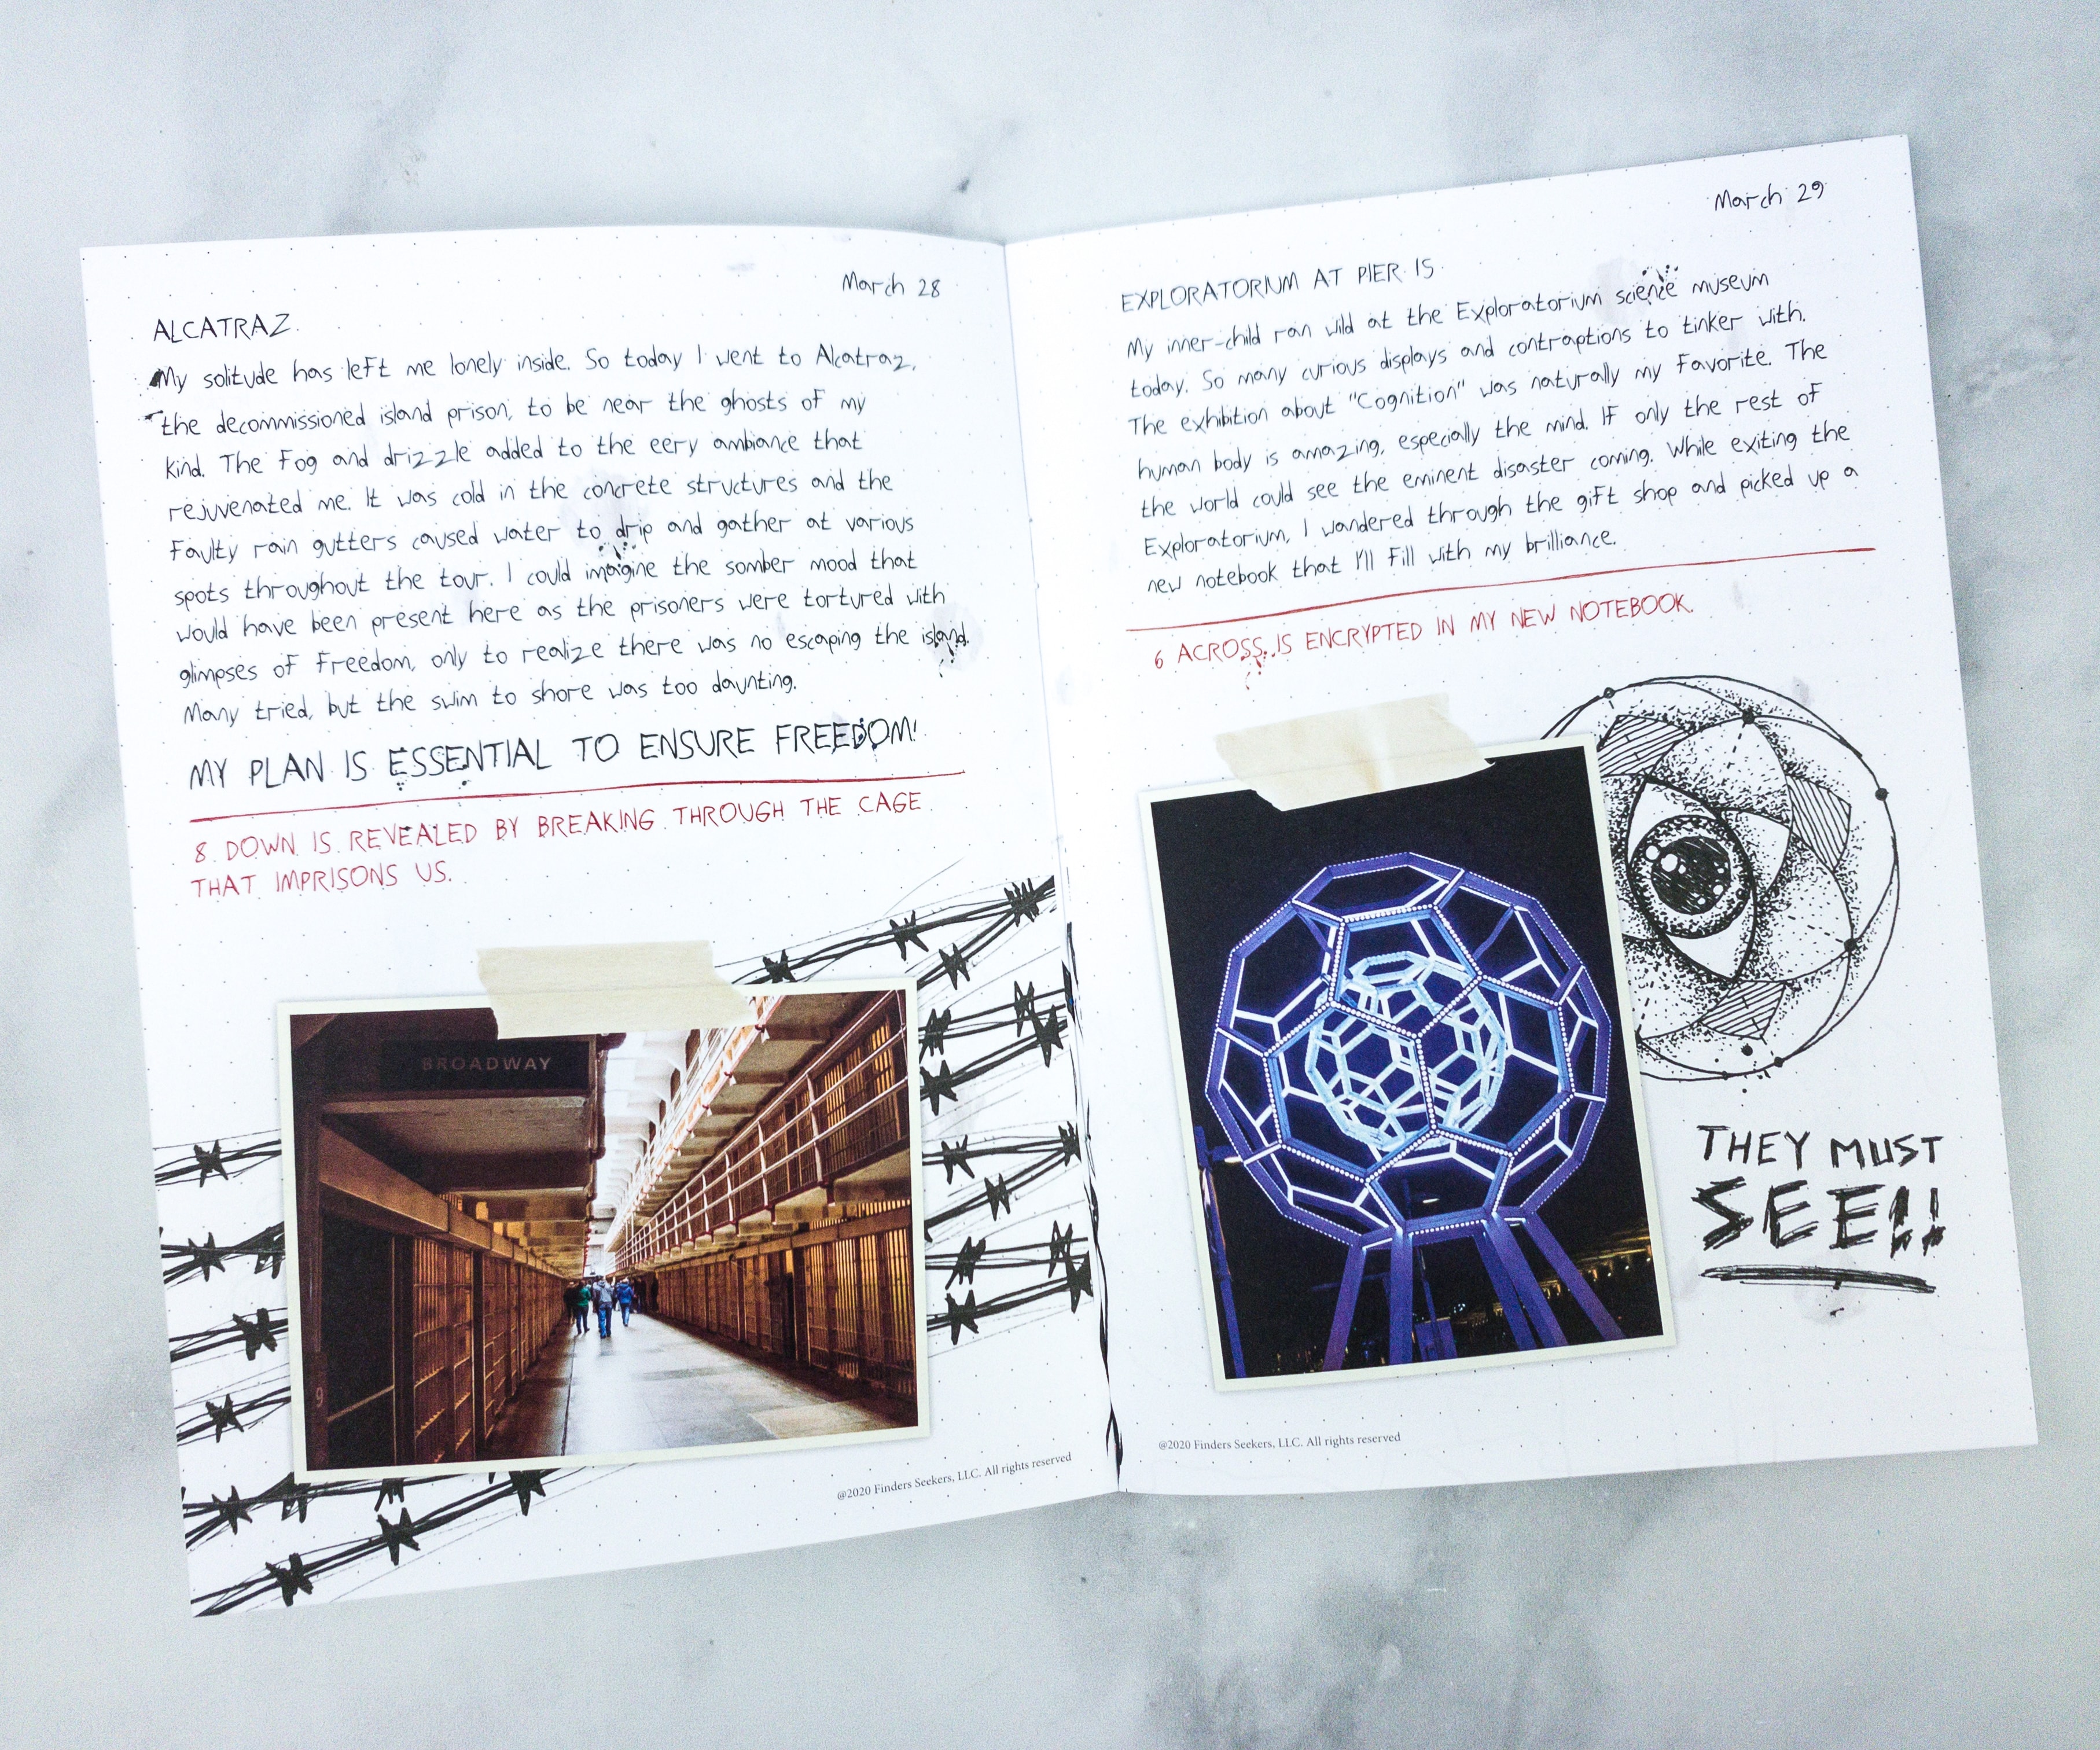 March 28
ALCATRAZ
My solitude has left me lonely inside. So today I went to Alcatraz,
the decommissioned island prison, to be near the ghosts of my
kind. The fog and drizzle added to the eery ambiance that
rejuvenated me. It was cold in the concrete structures and the
faulty rain gutters caused water to drip and gather at various
spots throughout the tour. I could imagine the somber mood that
would have been present here as the prisoners were tortured with
glimpses of freedom, only to realize there was no escaping the island.
Many tried, but the swim to shore was too daunting.
MY PLAN IS ESSENTIAL TO ENSURE FREEDOM!
8 DOWN IS REVEALED BY BREAKING THROUGH THE CAGE
THAT IMPRISONS US.
BROADWAY
9
@2020 Finders Seekers, LLC. All rights reserved
March 29
EXPLORATORIUM AT PIER 15
My inner-child ran wild at the Exploratorium science museum
today. So many curious displays and contraptions to tinker with.
The exhibition about "Cognition" was naturally my favorite. The
human body is amazing, especially the mind. If only the rest of
the world could see the eminent disaster coming. While exiting the
Exploratorium, I wandered through the gift shop and picked up a
new notebook that I'll fill with my brilliance.
6 ACROSS IS ENCRYPTED IN MY NEW NOTEBOOK.
THEY MUST
SEE!!
@2020 Finders Seekers, LLC. All rights reserved